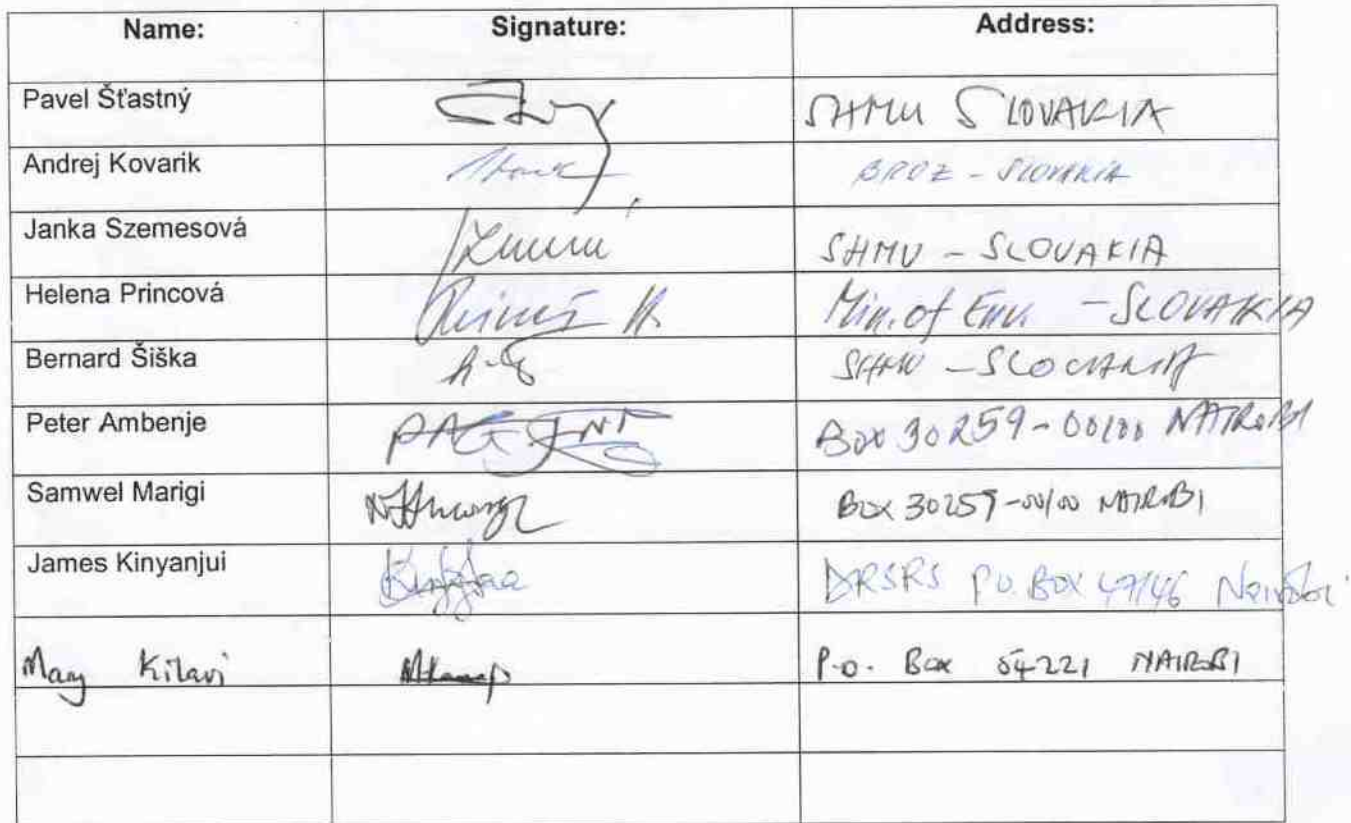 Name: Signature: Address:
Pavel Šťastný SHMU SLOVAKIA
Andrej Kovarik BROZ - SLOVAKIA
Janka Szemesová SHMU - SLOVAKIA
Helena Princová Min. of Env. - SLOVAKIA
Bernard Šiška SHMU - SLOVAKIA
Peter Ambenje Box 30259-00100 NAIROBI
Samwel Marigi Box 30259-00100 NAIROBI
James Kinyanjui DRSRS P.O. Box 47146 Nairobi
Mary Kilavi P.O. Box 54221 NAIROBI